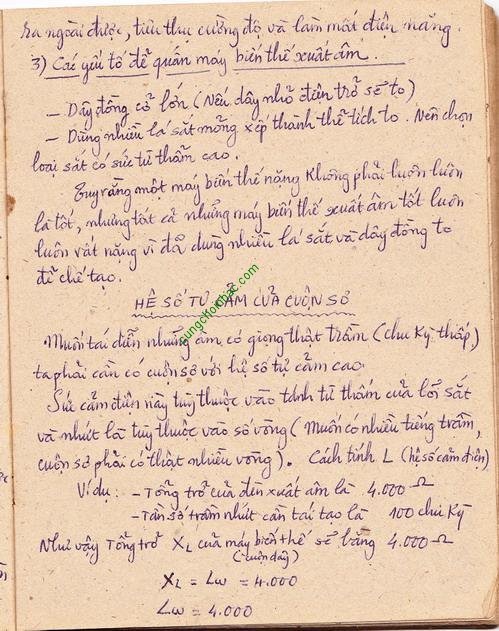 ra ngoài được, tiêu thụ cường độ và làm mất điện năng.
3) Các yếu tố để quấn máy biến thế xuất âm.
- Dây đồng cỡ lớn (Nếu dây nhỏ điện trở sẽ to)
- Dùng nhiều lá sắt mỏng xếp thành thể tích to. Nên chọn
loại sắt có sức từ thẩm cao.
Tuy rằng một máy biến thế nặng không phải luôn luôn
là tốt, nhưng tất cả những máy biến thế xuất âm tốt luôn
luôn vất nặng vì đã dùng nhiều lá sắt và dây đồng to
để chế tạo.
HỆ SỐ TỰ CẢM CỦA CUỘN SƠ
sungchoikhac.com
Muốn tái diễn những âm có giọng thật trầm (chu kỳ thấp)
ta phải cần có cuộn sơ với hệ số tự cảm cao.
Sức cảm điện này tùy thuộc vào tánh từ thẩm của lõi sắt
và nhứt là tùy thuộc vào số vòng (Muốn có nhiều tiếng trầm,
cuộn sơ phải có thật nhiều vòng). Cách tính L (hệ số cảm điện)
Ví dụ: - Tổng trở của đèn xuất âm là 4.000 Ω
- Tần số trầm nhứt cần tái tạo là 100 chu kỳ
Như vậy Tổng trở XL của máy biến thế sẽ bằng 4.000 Ω
(cuộn dây)
XL = Lω = 4.000
Lω = 4.000